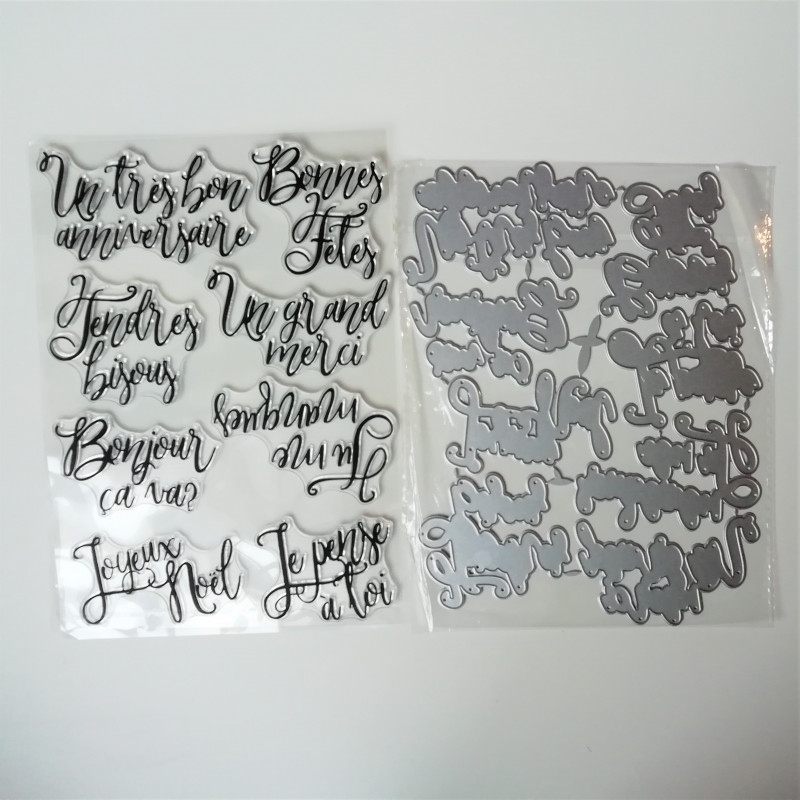 Un très bon
anniversaire
Bonnes
Fêtes
Tendres
bisous
Un grand
merci
Bonjour
ça va?
Tu me
manques
Joyeux
Noël
Je pense
à toi